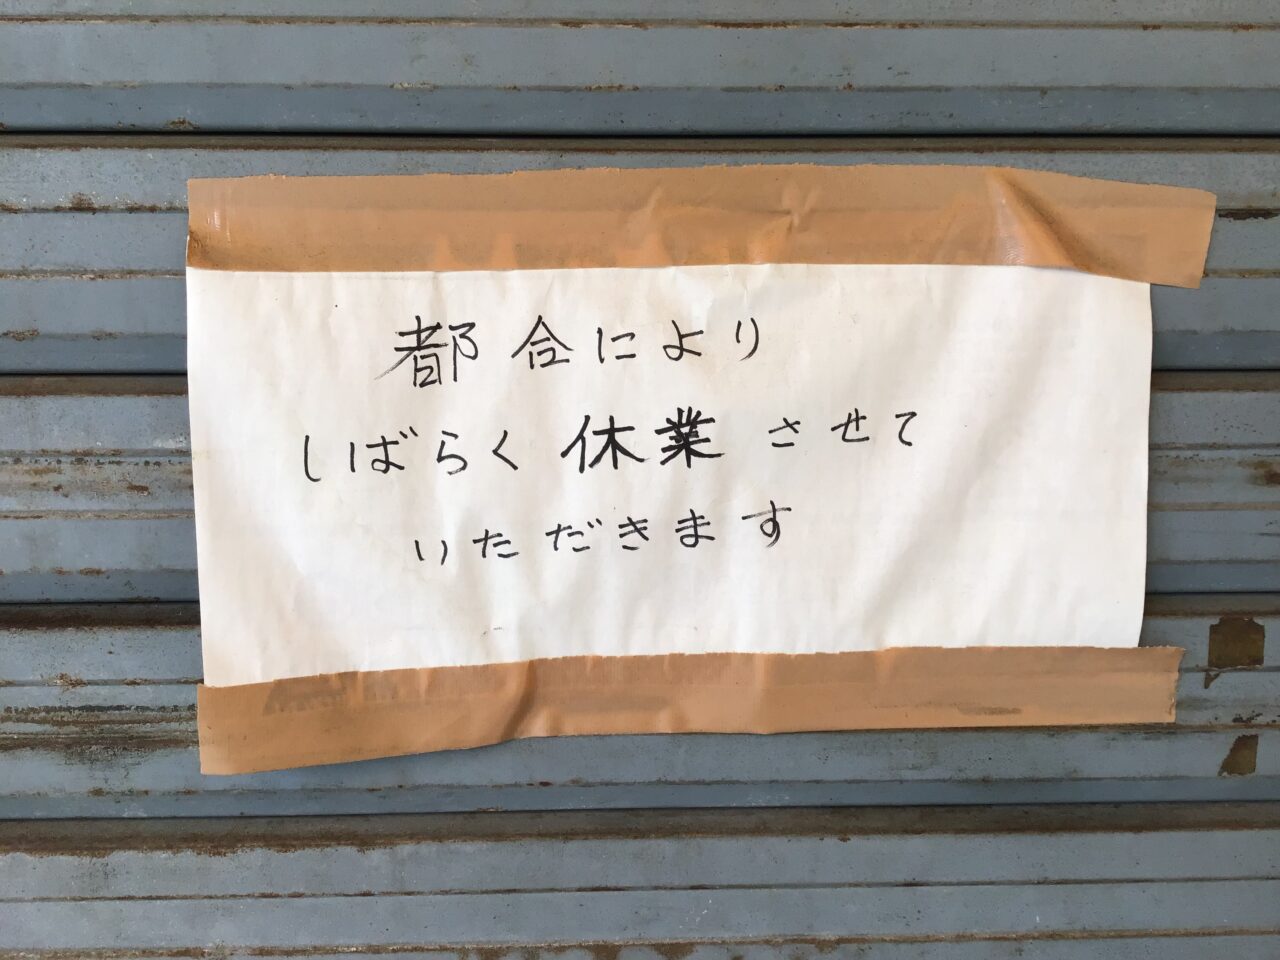 都合により
しばらく休業させて
いただきます